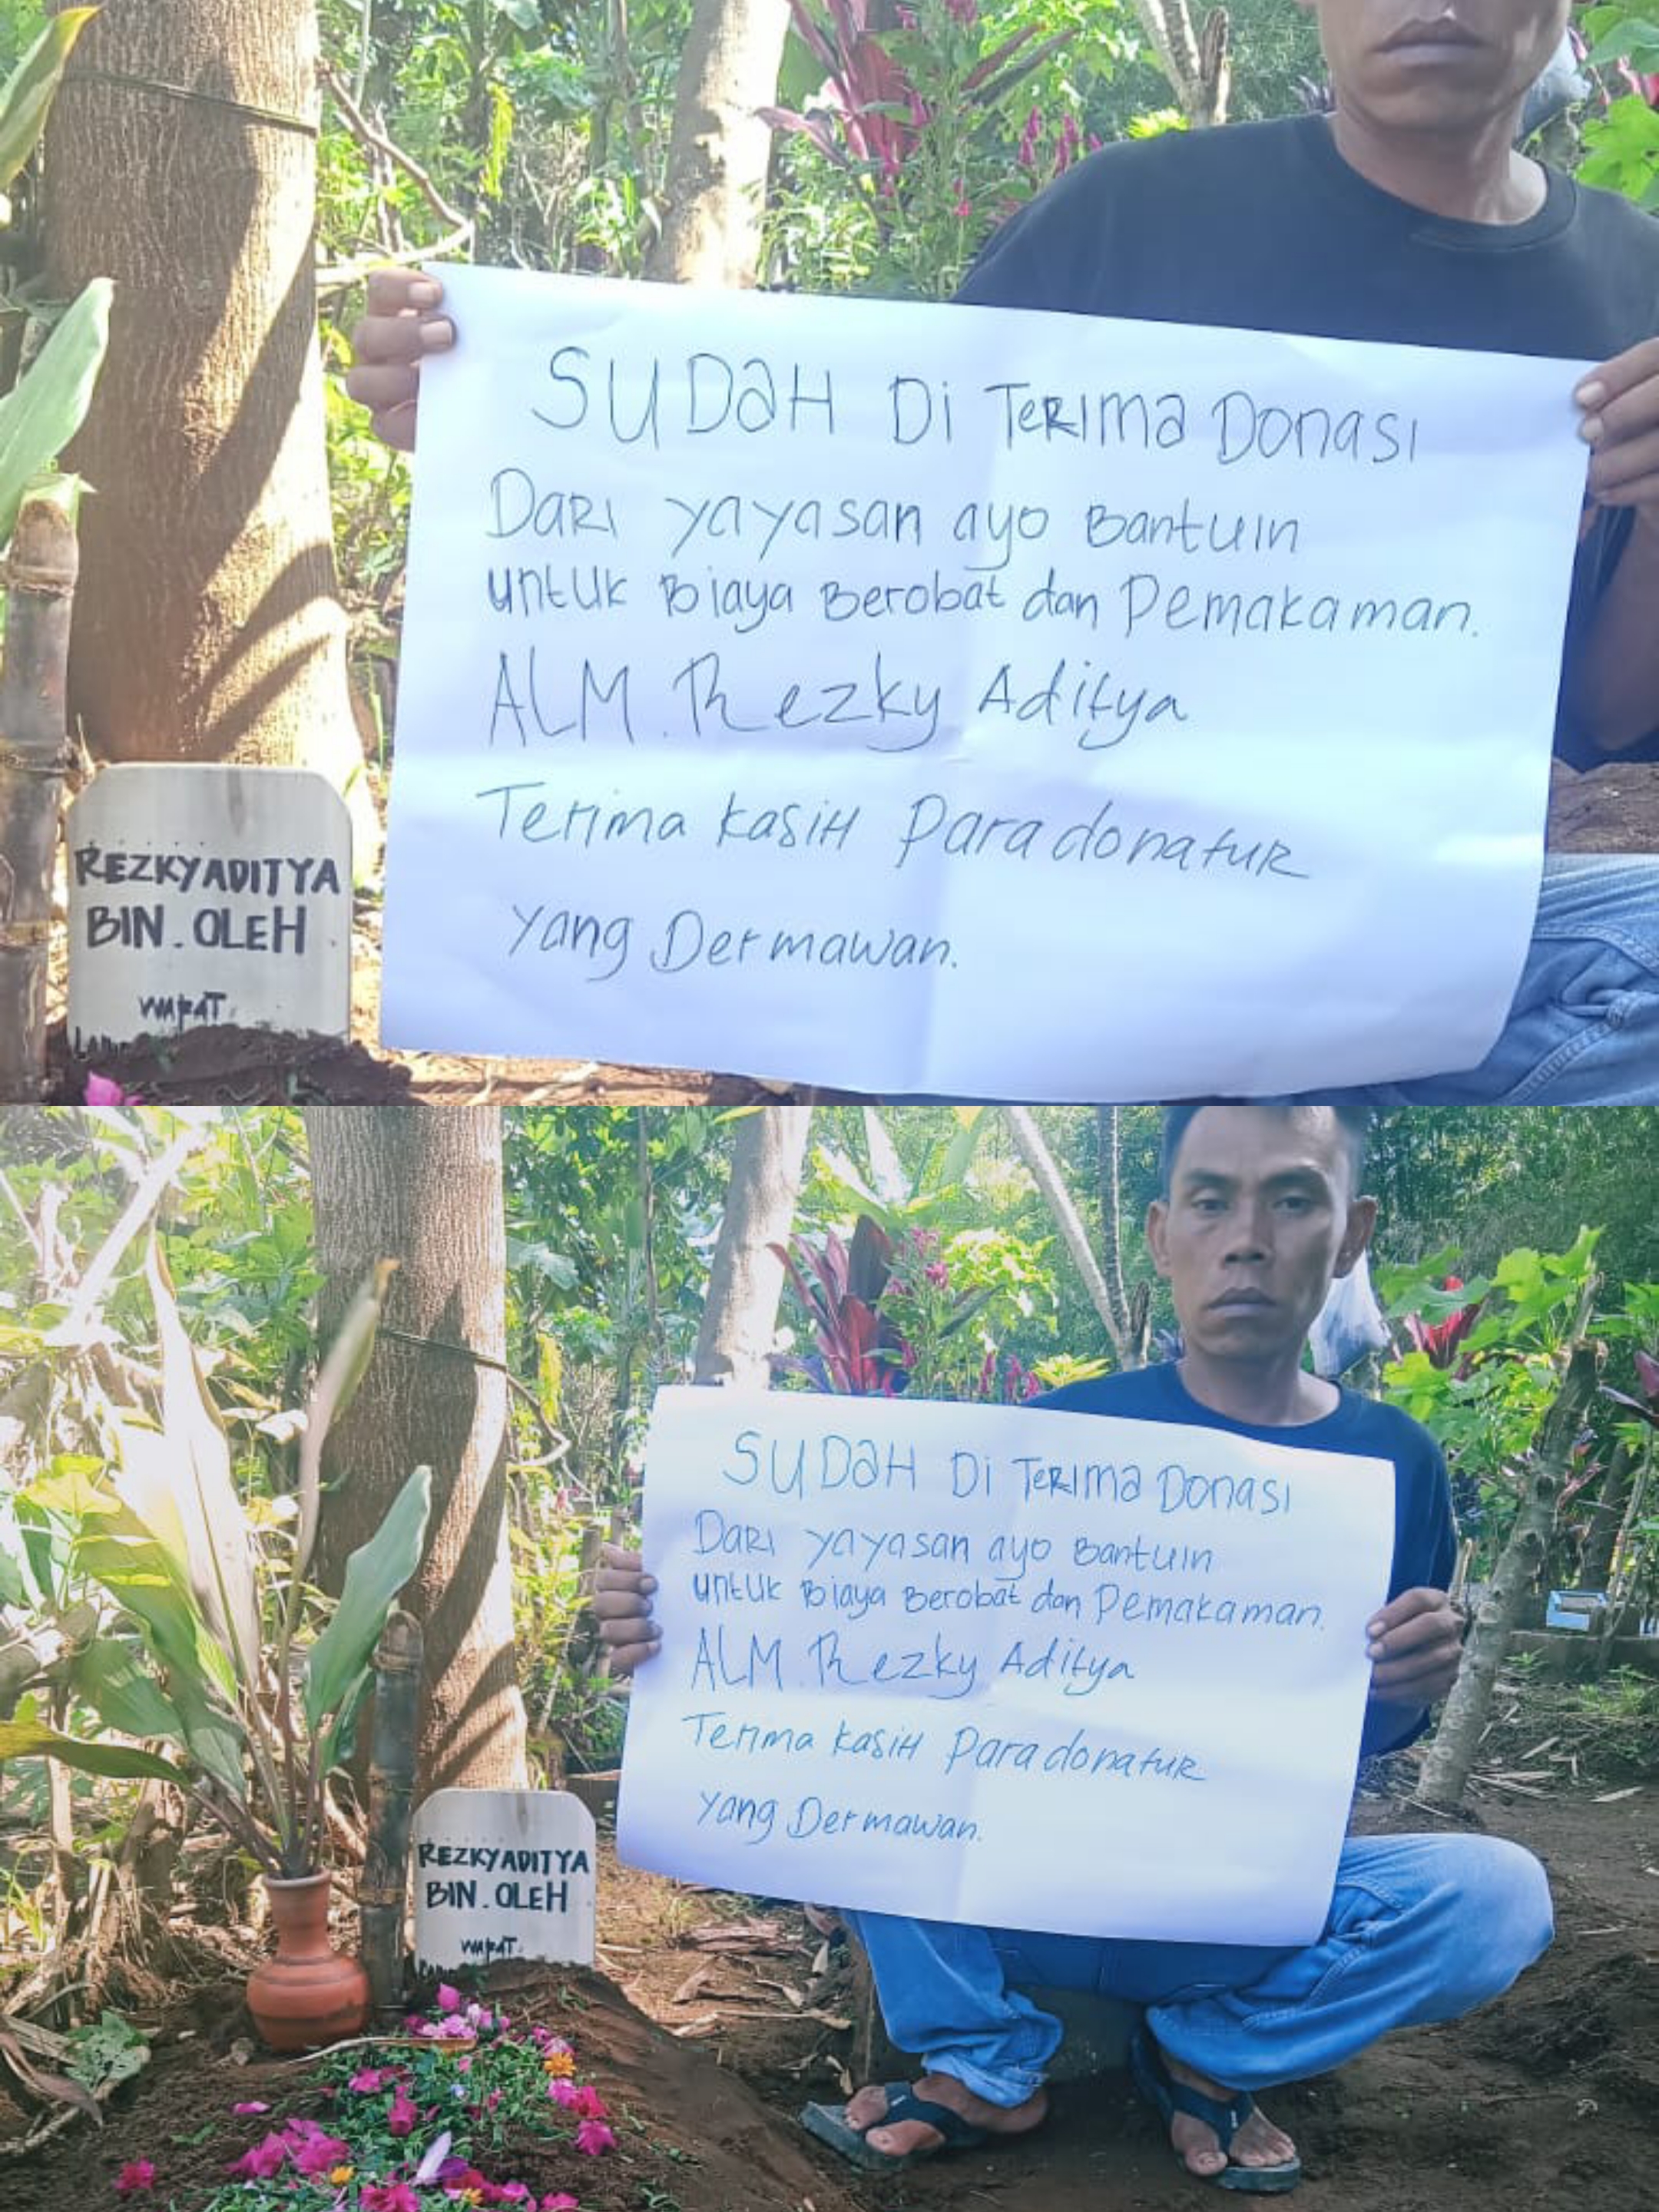 SUDAH Di TERIMA Donasi
DARI yayasan ayo Bantuin
untuk Biaya Berobat dan Pemakaman.
ALM. Rezky Aditya
Terima kasiH Para donatuR
yang Dermawan.
REZKY ADITYA
BIN. OLEH
WAFAT.
SUDAH Di TERIMA Donasi
DARI yayasan ayo Bantuin
untuk Biaya Berobat dan Pemakaman.
ALM. Rezky Aditya
Terima kasiH Para donatuR
yang Dermawan.
REZKY ADITYA
BIN. OLEH
WAFAT.